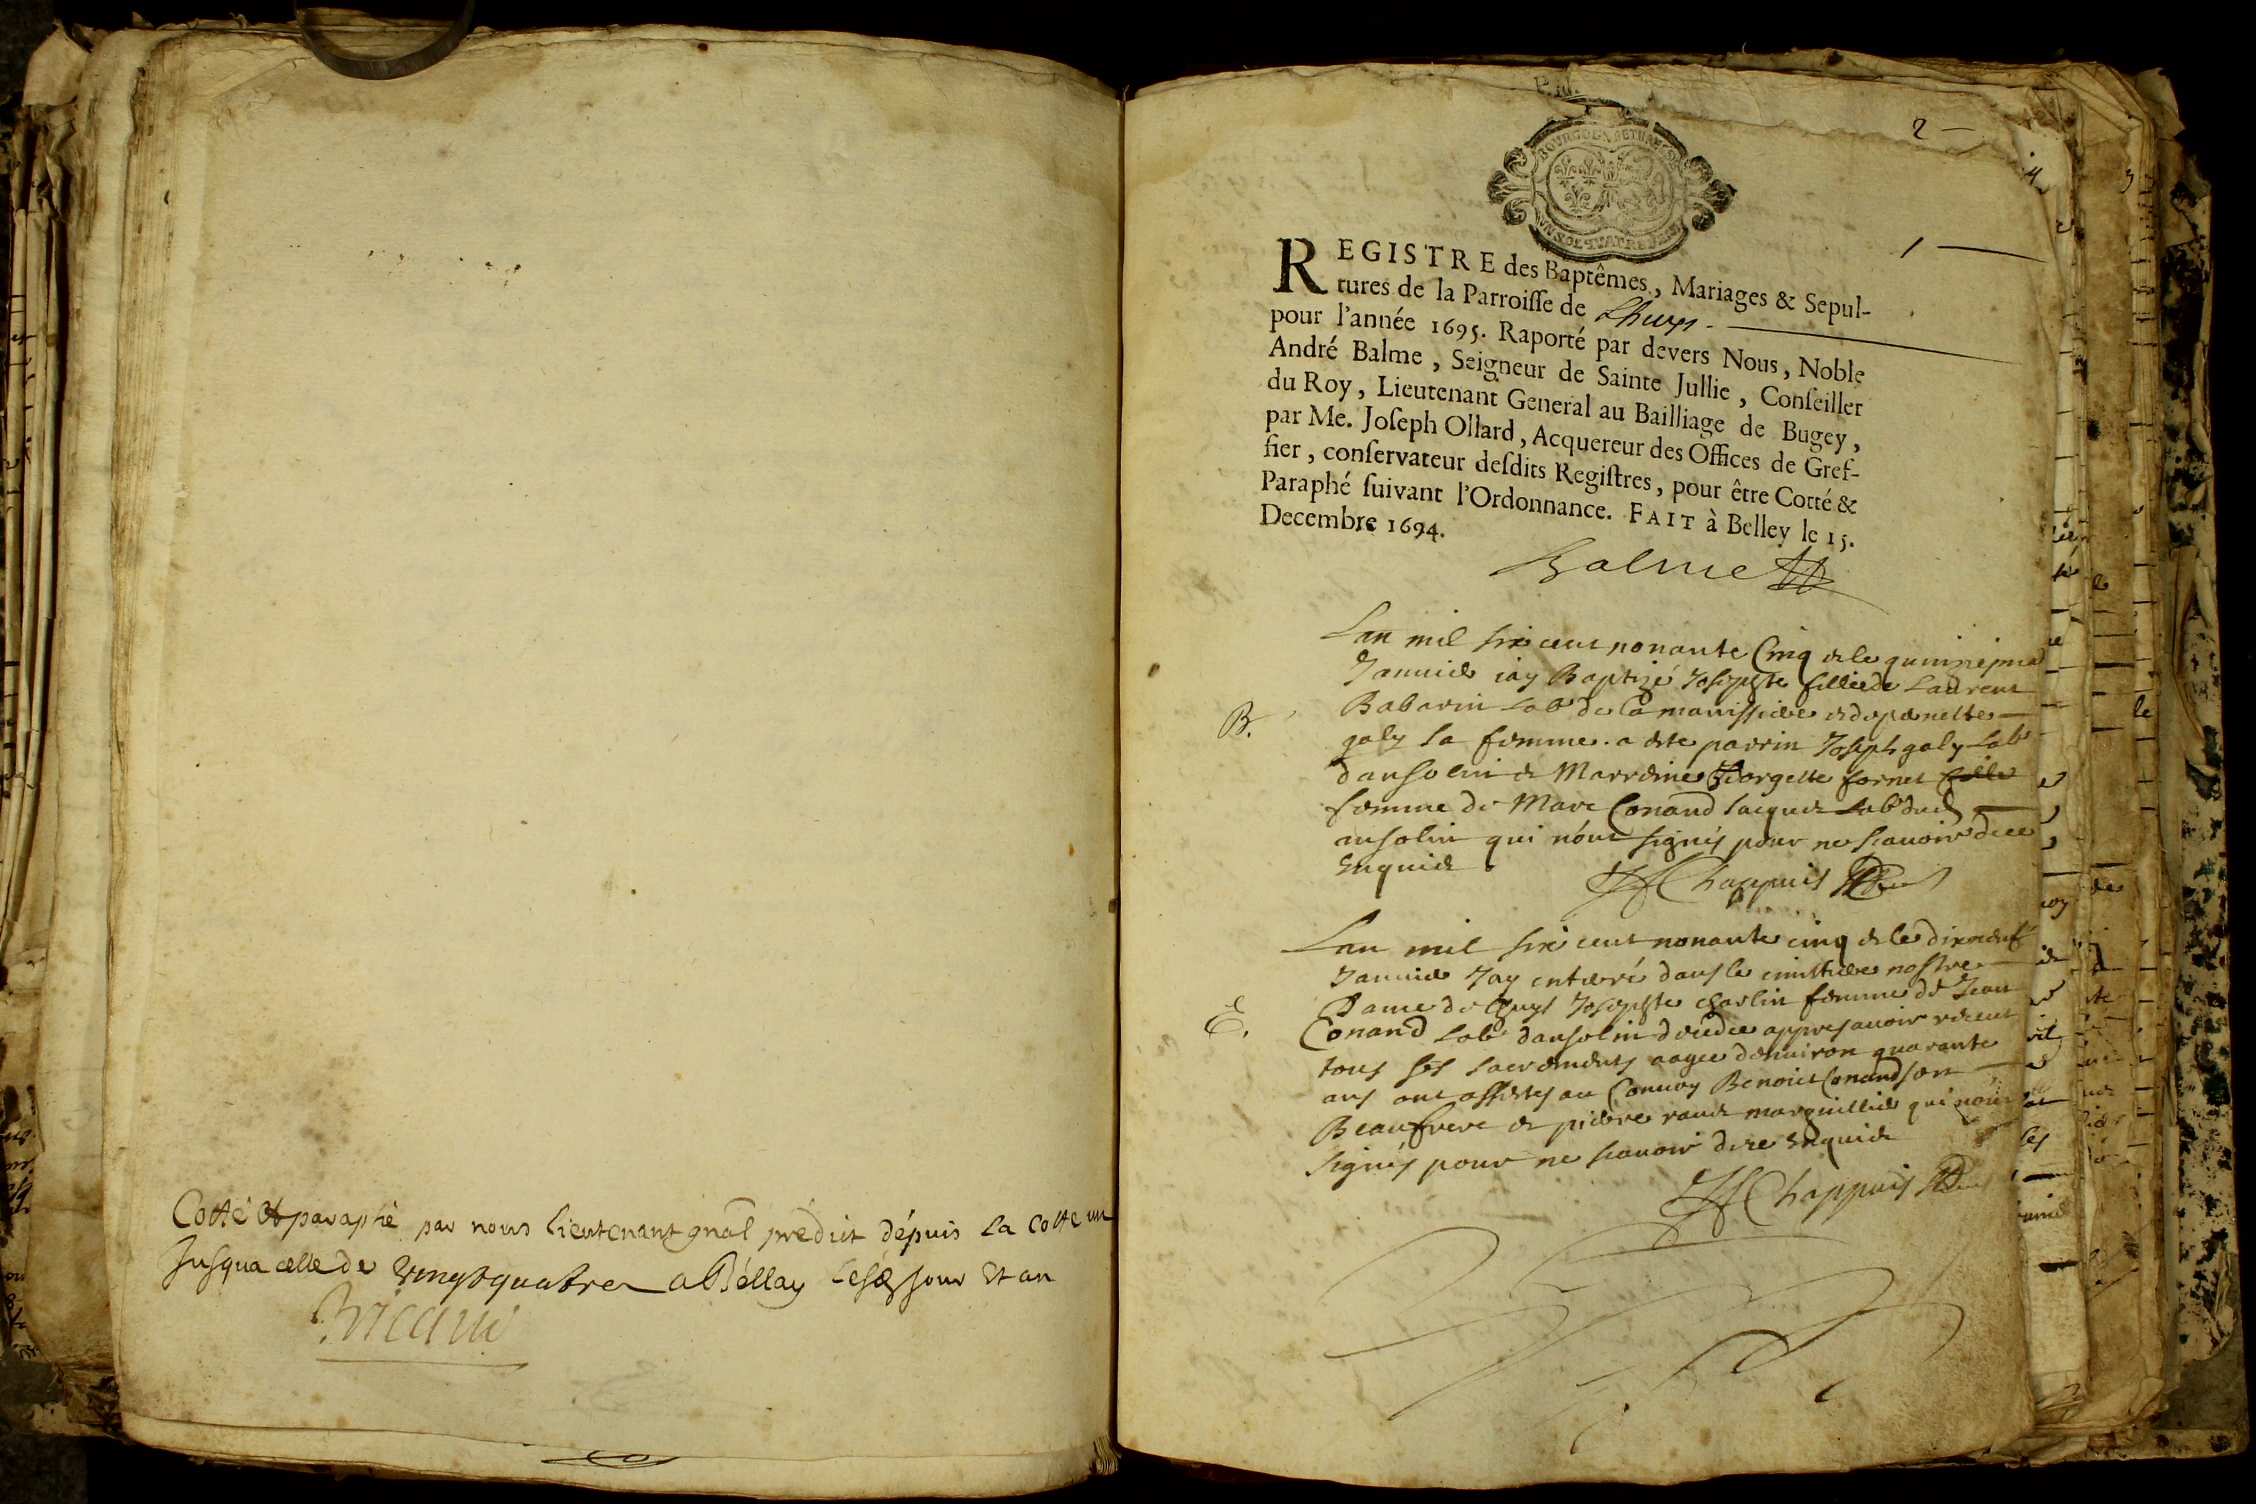 Cotté et paraphé par nous lieutenant gnãl prédit dépuis la cotte un
jusqua celle de vingtquatre a Béllay jour et an
2
1
REGISTRE des Baptêmes, Mariages & Sepul-
tures de la Parroisse de Lhuys
pour l'année 1695. Raporté par devers Nous, Noble
André Balme, Seigneur de Sainte Jullie, Conseiller
du Roy, Lieutenant General au Bailliage de Bugey,
par Me. Joseph Ollard, Acquereur des Offices de Gref-
fier, conservateur desdits Registres, pour être Cotté &
Paraphé suivant l'Ordonnance. FAIT à Belley le 15.
Decembre 1694.
Balme
Lan mil six cent nonante Cinq et le
Januier iay Baptizé Josephte fillie de Laurent
B.
Babarin Lab de et de
galy sa femme. a este parrin Joseph galy Lab
dansolin et Marreine Georgette fornet fille
femme de Marc Conand Lab dud
ansolin qui nont signés pour ne scauoir de ce
Enquis
Chappuis
Lan mil six cent nonante cinq et le dixneuf
Januier Jay enterré dans le cimistiere nostre
E.
Dame de Lhuys Josephte charlin femme de Jean
Conand Lab dansolin appres auoir receut
tous ses sacrements aagee denuiron quarante
ans ont assistes au Conuoy Benoict Conand son
Beaufrere et pierre marguillier qui nont
signés pour ne scauoir de ce Enquis
Chappuis